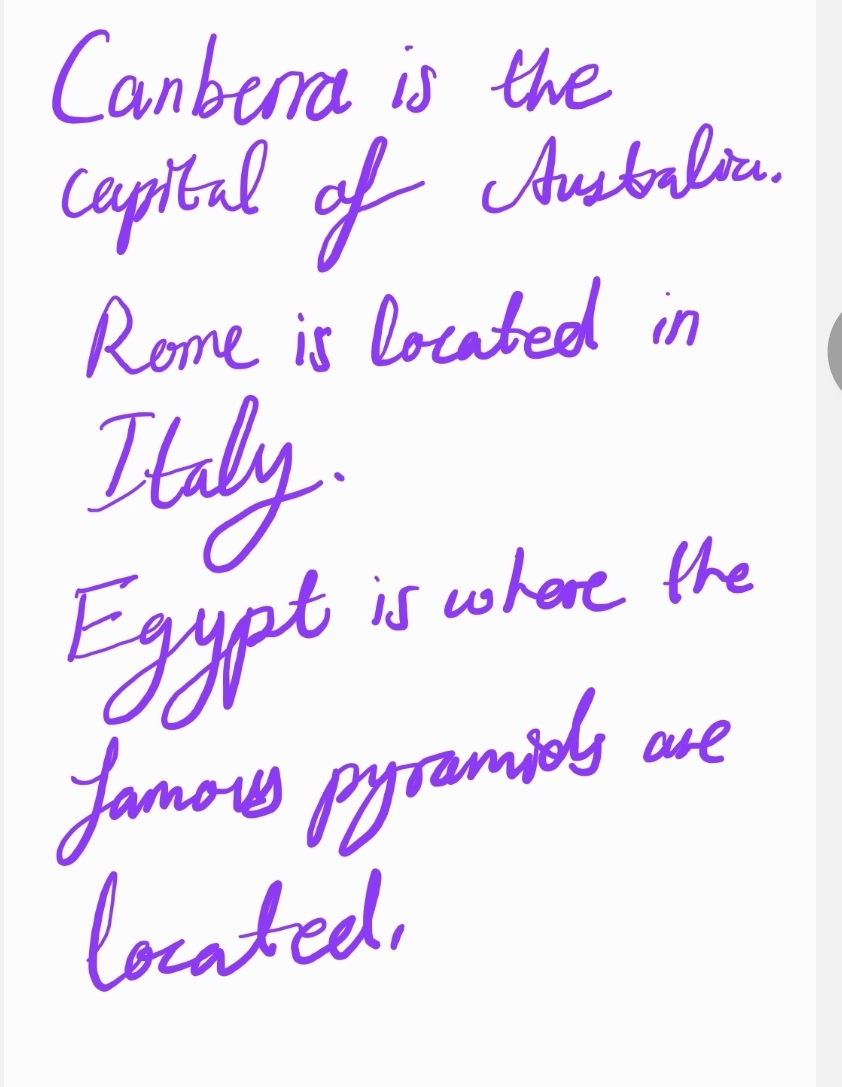 Canberra is the
capital of Australia.
Rome is located in
Italy.
Egypt is where the
famous pyramids are
located.